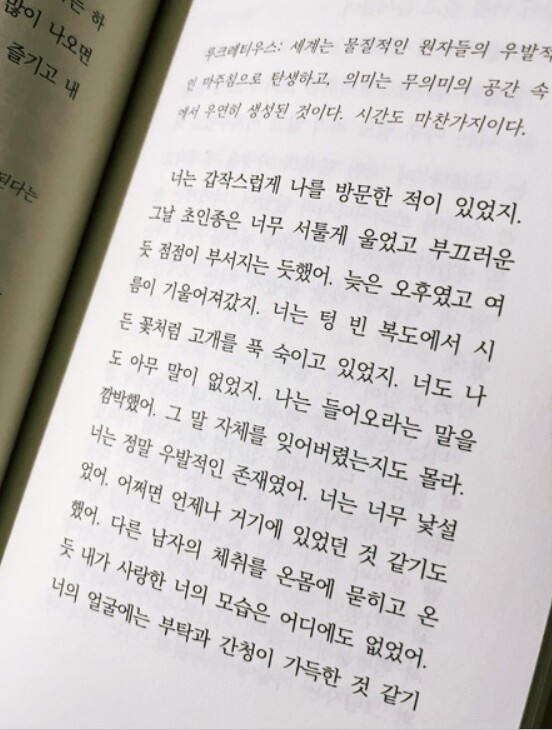 는 하
많이 나오면
즐기고 내
된다는
루크레티우스: 세계는 물질적인 원자들의 우발적
인 마주침으로 탄생하고, 의미는 무의미의 공간 속
에서 우연히 생성된 것이다. 시간도 마찬가지이다.
너는 갑작스럽게 나를 방문한 적이 있었지.
그날 초인종은 너무 서툴게 울었고 부끄러운
듯 점점이 부서지는 듯했어. 늦은 오후였고 여
름이 기울어져갔지. 너는 텅 빈 복도에서 시
든 꽃처럼 고개를 푹 숙이고 있었지. 너도 나
도 아무 말이 없었지. 나는 들어오라는 말을
깜박했어. 그 말 자체를 잊어버렸는지도 몰라.
너는 정말 우발적인 존재였어. 너는 너무 낯설
었어. 어쩌면 언제나 거기에 있었던 것 같기도
했어. 다른 남자의 체취를 온몸에 묻히고 온
듯 내가 사랑한 너의 모습은 어디에도 없었어.
너의 얼굴에는 부탁과 간청이 가득한 것 같기